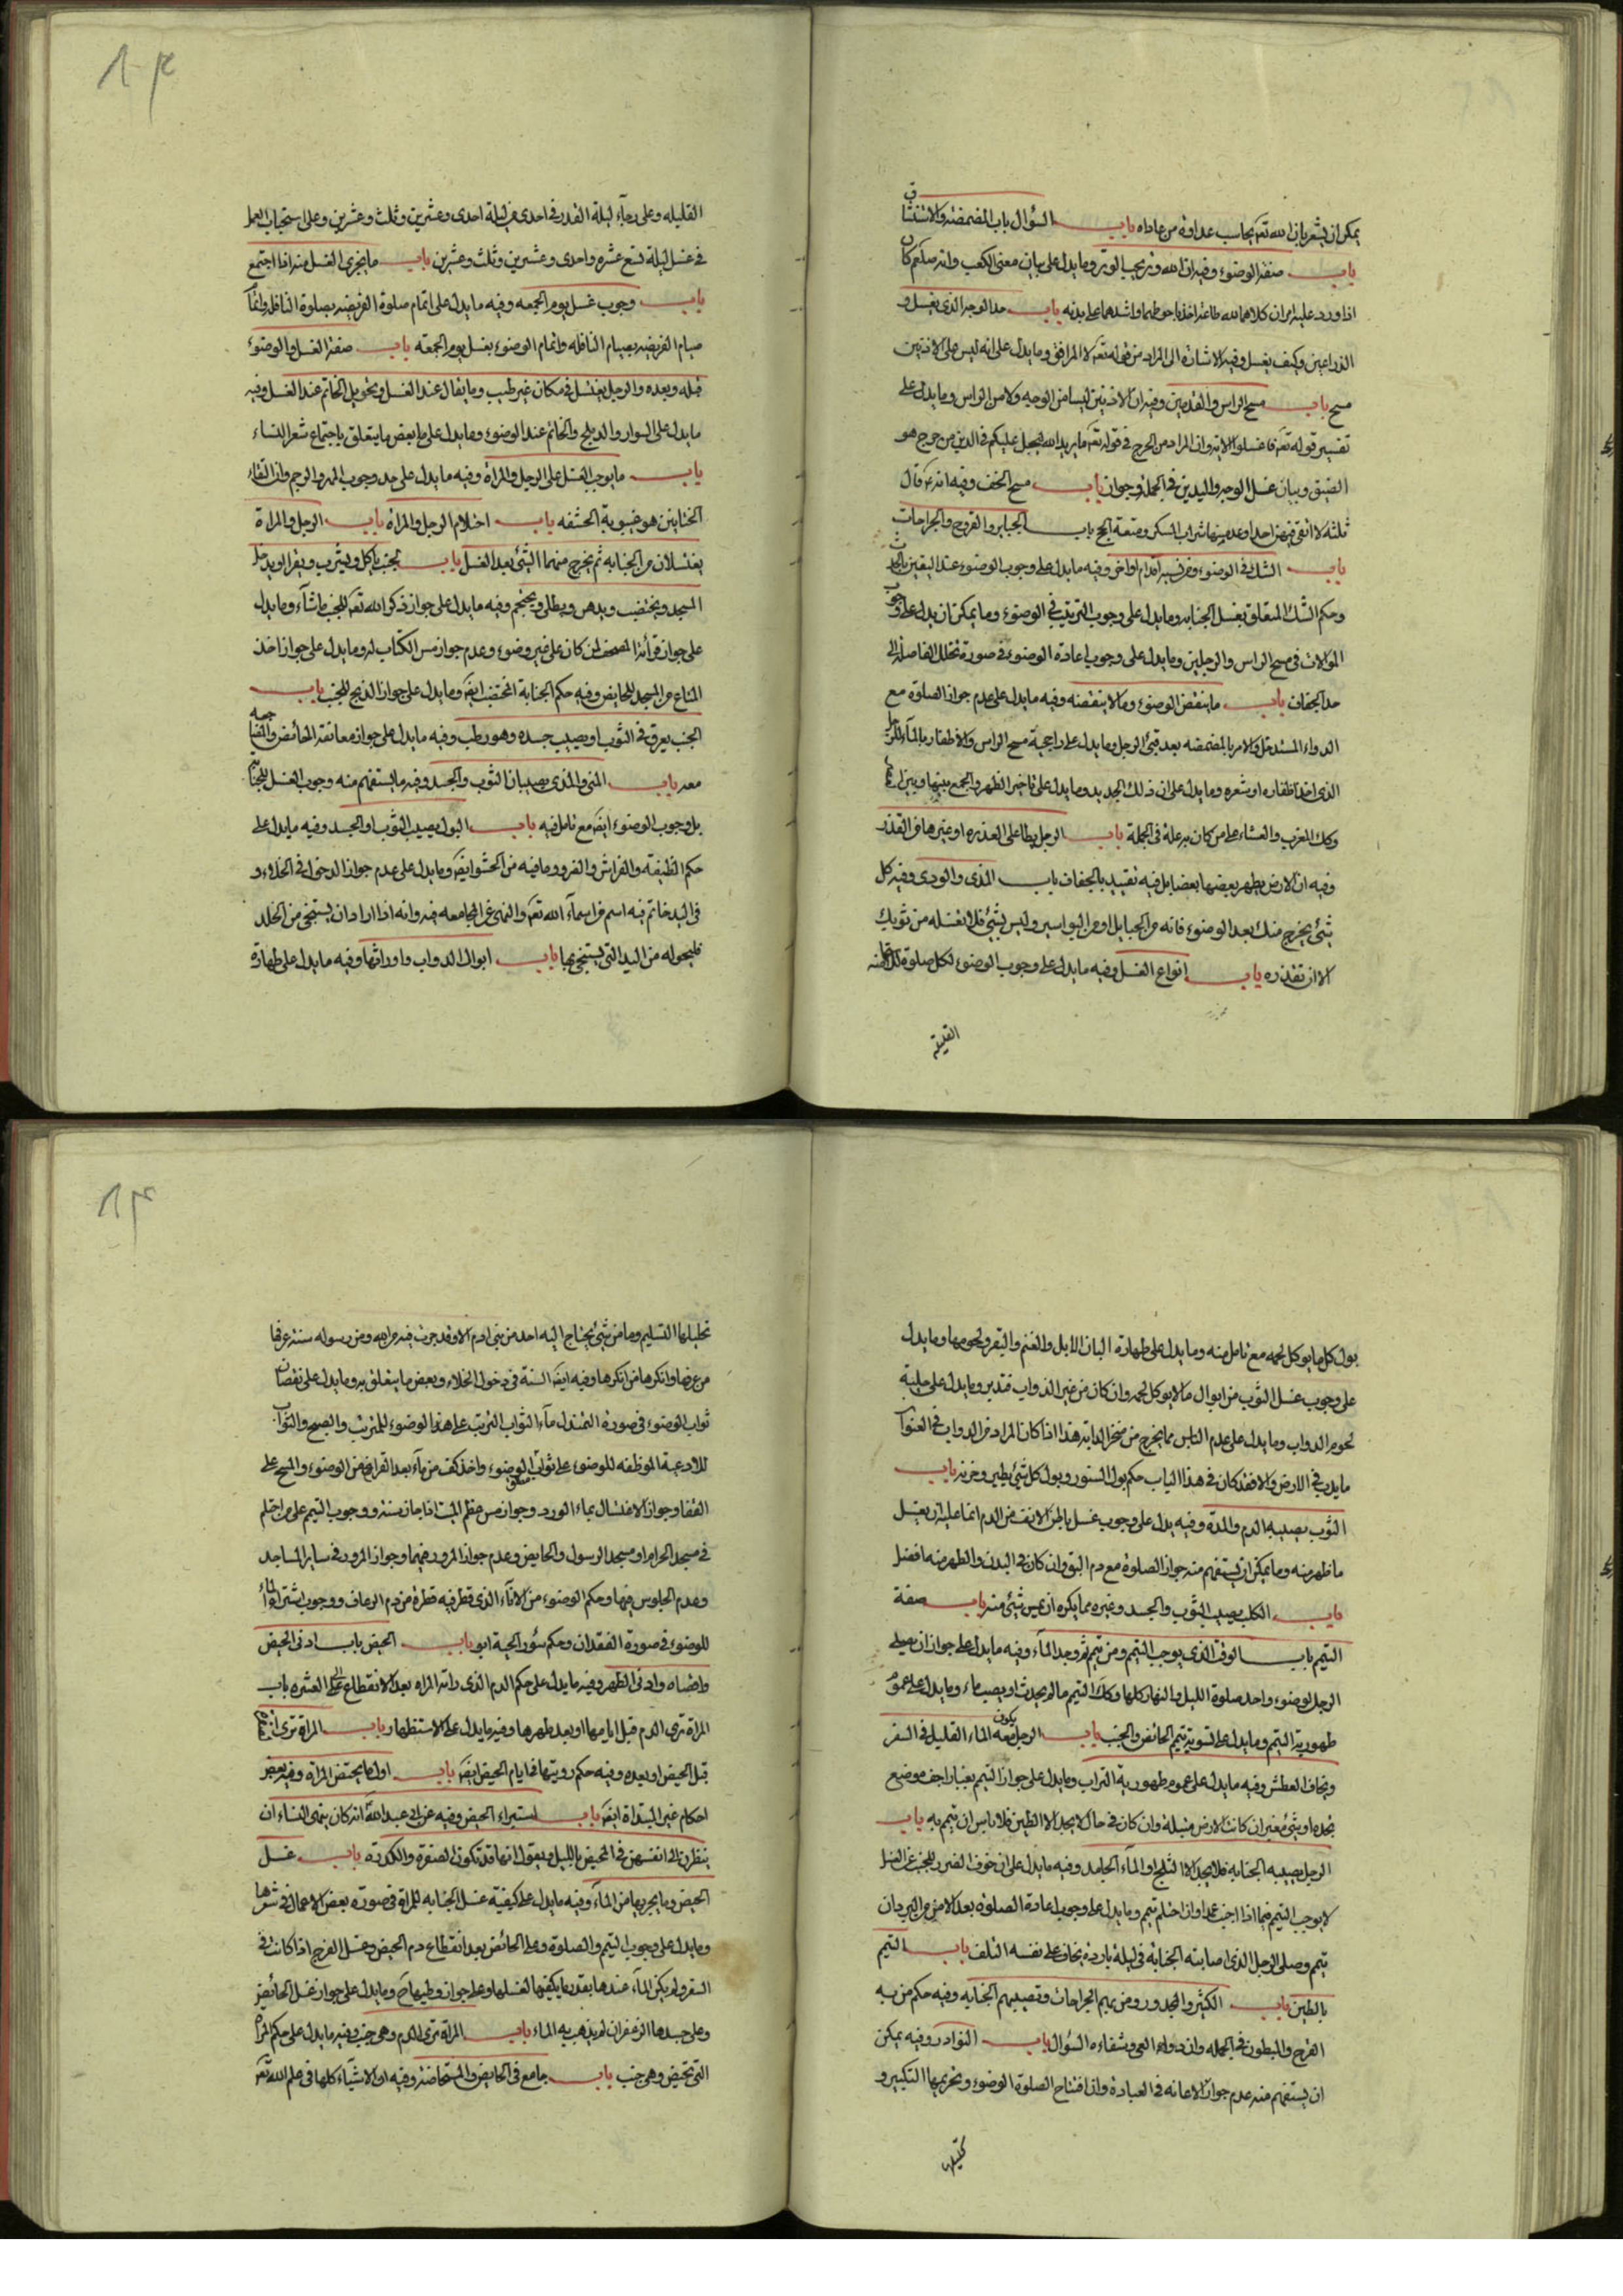 يمكن ان يشعر بان الله تعه يحاسب عداوة من عاداه باب السؤال باب المضمضة والاستنشاق
باب صفة الوضوء وفيه ان الله وتر يحب الوتر وما يدل على بيان معنى الكعب وانه صلعم كان
اذا ورد عليه امران كلاهما لله طاعة اخذ باحوطهما واشدهما على بدنه باب حد الوجه الذي يغسل و
الذراعين وكيف يغسل وفيه الاشارة الى المراد من قوله تعه الى المرافق وما يدل على انه ليس على الاذنين
مسح باب مسح الراس والقدمين وفيه ان الاذنين ليسا من الوجه ولا من الراس وما يدل على
تفسير قوله تعه فاغسلوا الاية وان المراد من الحرج في قوله تعه ما يريد الله ليجعل عليكم في الدين من حرج هو
الضيق وبيان غسل الوجه واليدين في الجملة وجوان باب مسح الخف وفيه انه ع قال
ثلثة لا اتقي فيهن احدا وعد منها شراب المسكر ومتعة الحج باب الجباير والقروح والجراحات
باب الشك في الوضوء وفيه ما يدل على وجوب الوضوء عند اليقين بالحدث
وحكم الشك المتعلق بغسل الجنابه وما يدل على وجوب الترتيب في الوضوء وما يمكن ان يدل على وجوب
الموالات في مسح الراس والرجلين وما يدل على وجوب اعادة الوضوء في صورة تخلل الفاصلة الى
حد الجفاف باب ما ينقض الوضوء وما لا ينقضه وفيه ما يدل على عدم جواز الصلوة مع
الدواء المستدخل والامر بالمضمضه بعد قيئ الرجل وما يدل على راجحية مسح الراس والاظفار بالماء للرجل
الذي اخذ اظفاره او شعره وما يدل على ان ذلك الحديد وما يدل على تاخير الظهر والجمع بينها وبين العصر
وكك المغرب والعشاء على من كان به علة في الجملة باب الرجل يطا على العذره او غيرها من القذر
وفيه ان الارض يطهر بعضها بعضا بل فيه تقييد بالجفاف باب المذي والودي وفيه كل
شئ يخرج منك بعد الوضوء فانه من الحبايل او من البواسير وليس بشئ فلا تغسله من ثوبك
الا ان تقذره باب انواع الغسل وفيه ما يدل على وجوب الوضوء لكل صلوة
القليله
القليله وعلى رجاء ليلة القدر في احدى من ليلة احدى وعشرين وثلث وعشرين وعلى استحباب العمل
في غسل ليلة تسع عشره واحدى وعشرين وثلث وعشرين باب ما يجزى الغسل منه اذا اجتمع
باب وجوب غسل يوم الجمعه وفيه ما يدل على اتمام صلوة الفريضه بصلوة النافله واتمام
صيام الفريضه بصيام النافله واتمام الوضوء بغسل يوم الجمعه باب صفة الغسل والوضوء
قبله وبعده والرجل يغتسل في مكان غير طيب وما يقال عند الغسل وتحويل الخاتم عند الغسل وفيه
ما يدل على السوار والدملج والخاتم عند الوضوء وما يدل على بعض ما يتعلق باجتماع شعر النساء
باب ما يوجب الغسل على الرجل والمراة وفيه ما يدل على حد وجوب المهر والرجم وان التقاء
الختانين هو غيبوبة الحشفه باب احتلام الرجل والمراة باب الرجل والمراة
يغتسلان من الجنابه ثم يخرج منهما الشئ بعد الغسل باب الجنب ياكل ويشرب ويقرا ويدخل
المسجد ويختضب ويدهن ويطلى ويحتجم وفيه ما يدل على جواز ذكر الله تعه للجنب ما شاء وما يدل
على جواز قرأة المصحف لمن كان على غير وضوء وعدم جواز مس الكتاب له وما يدل على جواز اخذ
المتاع من المسجد للحايض وفيه حكم الجنابة المختضب ايضه وما يدل على جواز الذبح للجنب باب
الجنب يعرق في الثوب او يصيب جسده وهو رطب وفيه ما يدل على جواز معانقة الحائض والمضاجعه
معه باب المني والمذي يصيبان الثوب والجسد وفيه ما يستفهم منه وجوب الغسل للجنابة
بل وجوب الوضوء ايضه مع تامل فيه باب البول يصيب الثوب او الجسد وفيه ما يدل على
حكم الطنفسه والفراش والفرو وما فيه من الحشو ايضه وما يدل على عدم جواز الدخول في الخلاء و
في اليد خاتم فيه اسم من اسماء الله تعه والنهي عن المجامعه فيه وانه اذا اراد ان يستنجي من الخلد
فليحوله من اليد التي يستنجي بها باب ابوال الدواب واوراثها وفيه ما يدل على طهارة
بول كل ما يوكل لحمه مع تامل منه وما يدل على طهارة البان الابل والغنم والبقر ولحومها وما يدل
على وجوب غسل الثوب من ابوال ما لا يوكل لحمه وان كان من غير الدواب فتدبر وما يدل على حلية
لحوم الدواب وما يدل على عدم الباس مما يخرج من منخر الدابة هذا اذا كان المراد من الدواب في العنوان
ما يدب في الارض والا فقد كان في هذا الباب حكم بول السنور وبول كل شئ يطير وخرئه باب
الثوب يصيبه الدم والمدة وفيه يدل على وجوب غسل باطن الانف من الدم انما عليه ان يغسل
ما ظهر منه وما يمكن ان يستفهم منه جواز الصلوة مع دم البق وان كان في البدن والظهر منه افضل
باب الكلب يصيب الثوب والجسد وغيره مما يكره ان يمس شئ منه باب صفة
التيمم باب الوقت الذي يوجب التيمم ومن تيمم ثم وجد الماء وفيه ما يدل على جواز ان يصلى
الرجل بوضوء واحد صلوة الليل والنهار كلها وكك التيمم ما لم يحدث او يصيب ماء وما يدل على عموم
طهورية التيمم وما يدل على تسوية تيمم الحائض والجنب باب الرجل يكون معه الماء القليل في السفر
ويخاف العطش وفيه ما يدل على عموم طهورية التراب وما يدل على جواز التيمم بغبار اجف موضع
تجده او شئ مغبر ان كانت الارض مبتلة وان كان في حال لا يجد الا الطين فلا باس ان تيمم به باب
الرجل يصيبه الجنابه فلا يجد الا الثلج او الماء الجامد وفيه ما يدل على ان خوف الضرر للجنب عن الغسل
لا يوجب التيمم فيما اذا اجنب عمدا وان احتلم تيمم وما يدل على وجوب اعادة الصلوة بعد الامن من البرد ان
تيمم وصلى الرجل الذي اصابته الجنابة في ليلة باردة يخاف على نفسه التلف باب التيمم
بالطين باب الكسير والمجدور ومن بهم الجراحات وتصيبهم الجنابه وفيه حكم من به
القرح والبطون في الجمله وان دواء العي وشفاءه السؤال باب النوادر وفيه يمكن
ان يستفهم منه عدم جواز الاعانه في العبادة وان افتتاح الصلوة الوضوء وتحريمها التكبير و
تحليلها
تحليلها التسليم وما من شئ يحتاج اليه احد من بني ادم الا وقد جرت فيه من الله ومن رسوله سنة عرفها
من عرفها وانكرها من انكرها وفيه ايضه السنة في دخول الخلاء وبعض ما يتعلق به وما يدل على نقصان
ثواب الوضوء في صورة التمندل ماء الثواب الترتب على هذا الوضوء للمغرب والصبح والثواب
للادعية الموظفه للوضوء على ثواب الوضوء واخذ كف من ماء بعد الفراغ من الوضوء والمسح على
القفا وجواز الاغتسال بماء الورد وجواز مس عظم الميت اذا جاز سنة ووجوب التيمم على من احتلم
في مسجد الحرام او مسجد الرسول والحايض وعدم جواز المرور فيهما وجواز المرور في ساير المساجد
وعدم الجلوس فيها وحكم الوضوء من الاناء الذي قطر فيه قطرة من دم الرعاف ووجوب اشتراء الماء
للوضوء في صورة الفقدان وحكم سؤر الحية ابو باب الحيض باب ادنى الحيض
واقصاه وادنى الطهر وفيه ما يدل على حكم الدم الذي راته المراه بعد الانقطاع الى العشره باب
المراة ترى الدم قبل ايامها او بعد طهرها وفيه ما يدل على الاستظهار باب المراة ترى الصفرة
قبل الحيض او بعده وفيه حكم رويتها في ايام الحيض ايضه باب اول ما يحيض المراة وفيه بعض
احكام غير المبتداة ايضه باب استبراء الحيض وفيه عن ابي عبد الله انه كان ينهى النساء ان
ينظرن الى انفسهن في المحيض بالليل ويقول انها قد تكون الصفرة والكدرة باب غسل
الحيض وما يجزيها من الماء وفيه ما يدل على كيفية غسل الجنابه للمراة في صورة بعض الاعمال في شعرها
وما يدل على وجوب التيمم والصلوة وعلى الحائض بعد انقطاع دم الحيض وغسل الفرج اذا كانت في
السفر ولم يكن الماء عندها بقدر ما يكفيها لغسلها وعلى جواز وطيها ح وما يدل على جواز غسل الحائض
وعلى جسدها الزعفران لم يذهب به الماء باب المراة ترى الدم وهي جنب وفيه ما يدل على حكم المراة
التي تحيض وهي جنب باب جامع في الحايض والمستحاضة وفيه ان الاشياء كلها في علم الله تعه